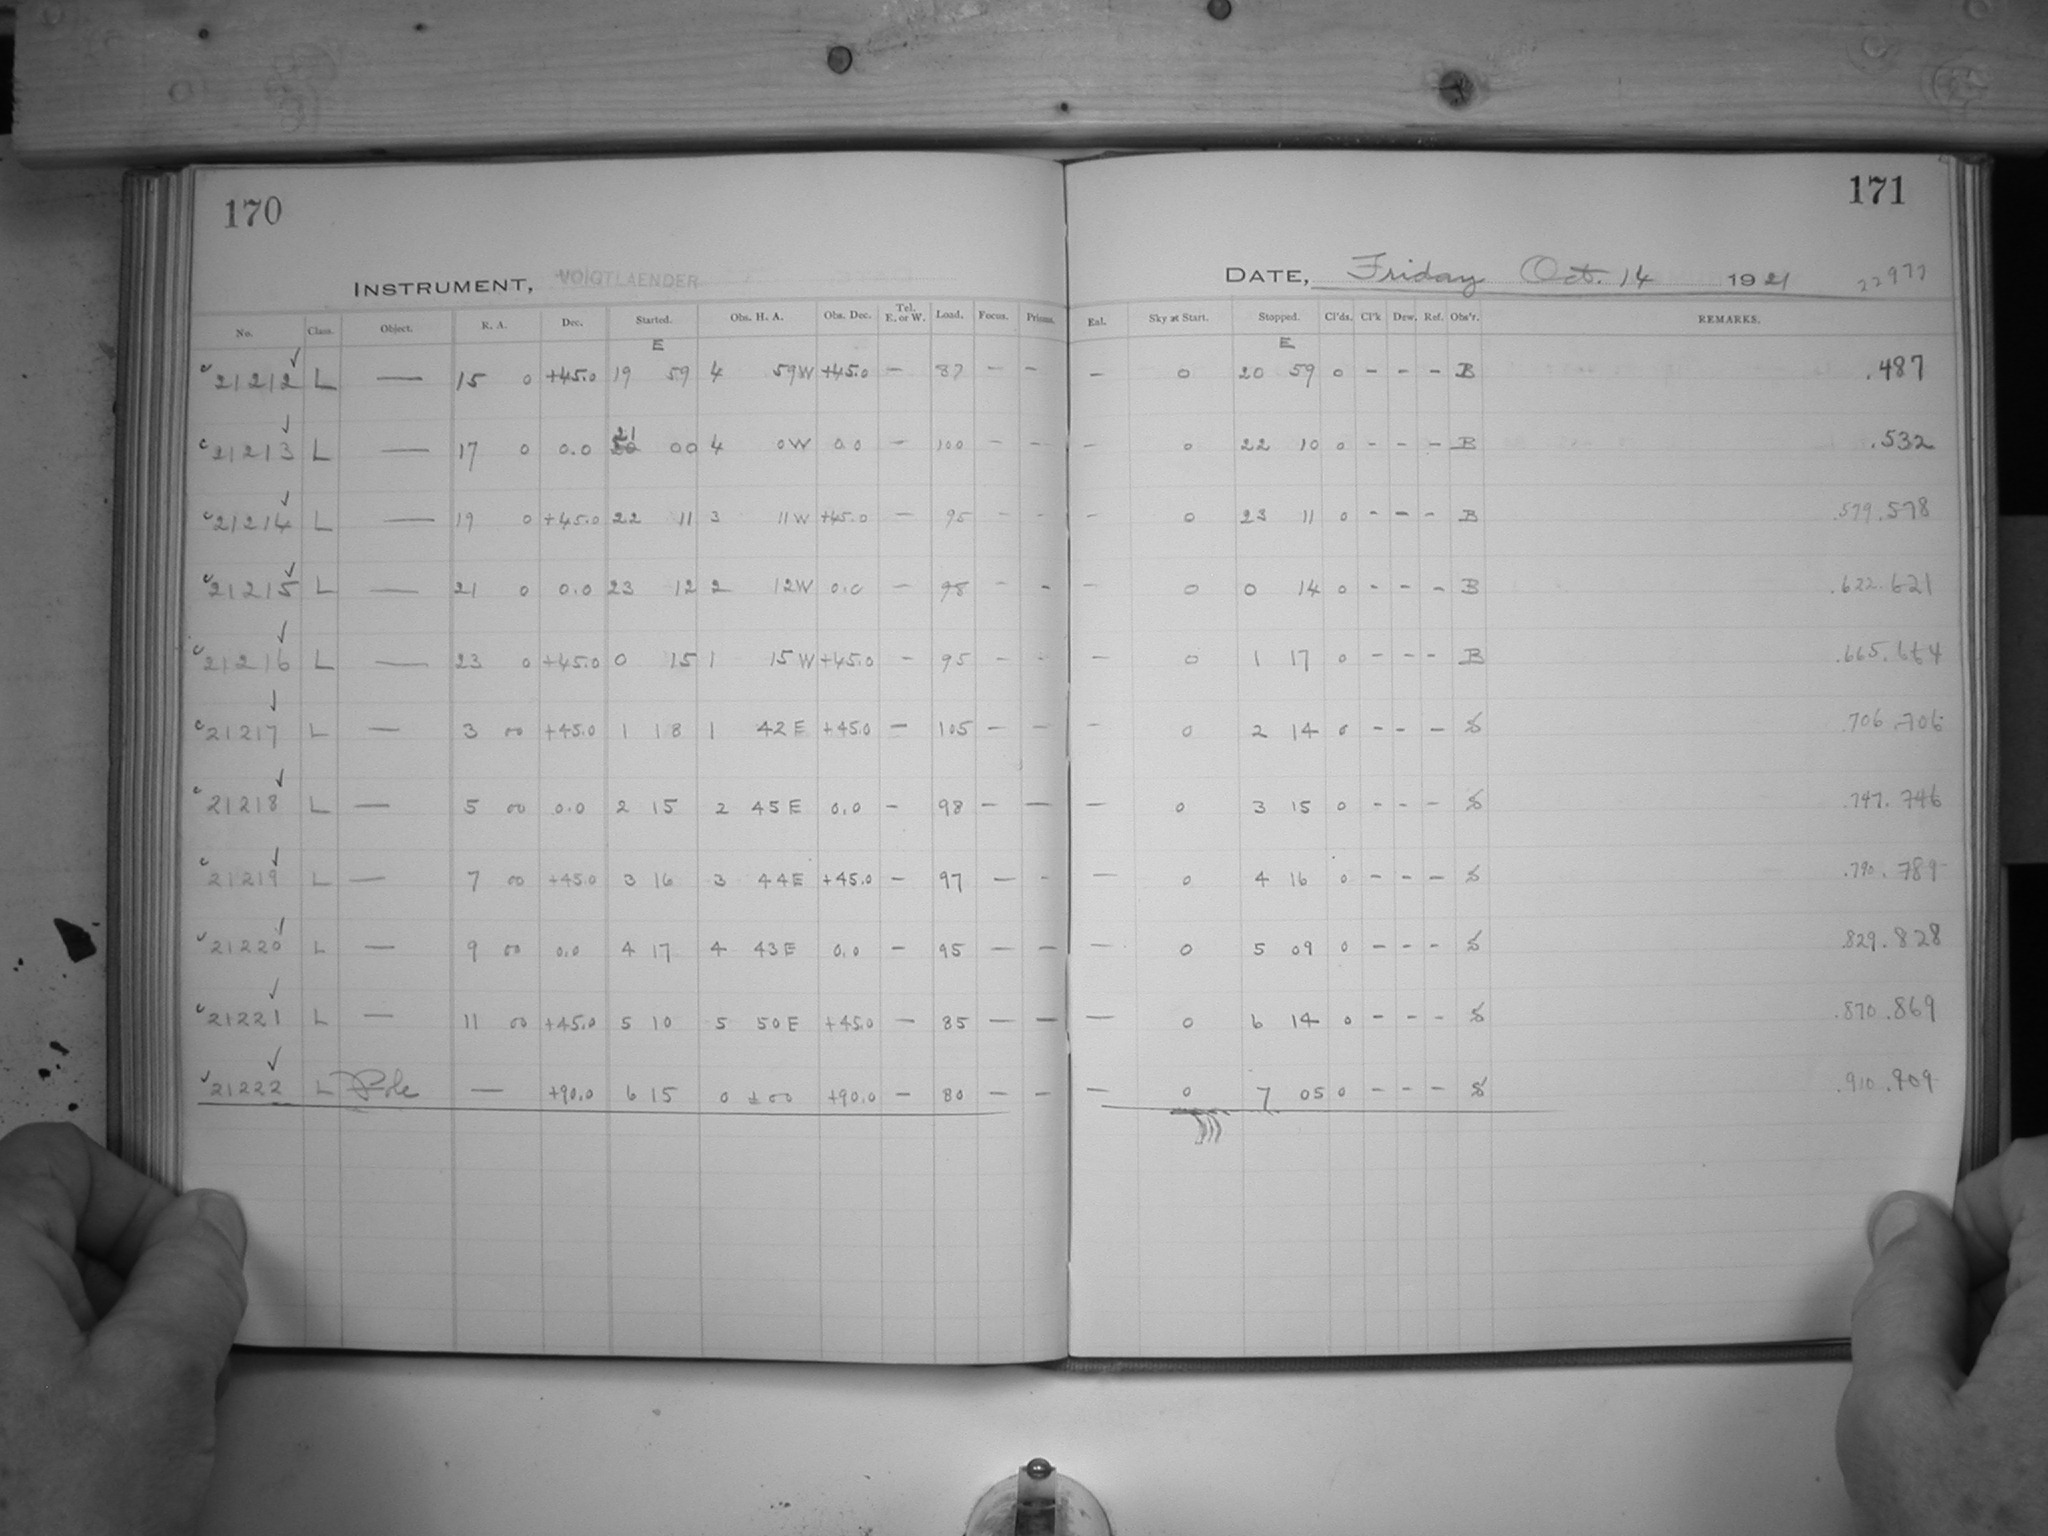 170
171
INSTRUMENT, VOIGTLAENDER
DATE, Friday Oct. 14 1921 22977
No. Class. Object. R. A. Dec. Started. Obs. H. A. Obs. Dec. Tel. E. or W. Load. Focus. Prisms. Eal. Sky at Start. Stopped. Cl'ds. Cl'k Dew. Ref. Obs'r. REMARKS.
E E
c 21212 ✓ L — 15 0 +45.0 19 59 4 59W +45.0 – 87 – – – 0 20 59 0 - - - B .487
c 21213 ✓ L — 17 0 0.0 21 00 4 0W 0.0 – 100 – – – 0 22 10 0 - - - B .532
c 21214 ✓ L — 19 0 +45.0 22 11 3 11W +45.0 – 95 – – – 0 23 11 0 - - - B .579 .578
c 21215 ✓ L — 21 0 0.0 23 12 2 12W 0.0 – 98 – – – 0 0 14 0 - - - B .622 .621
c 21216 ✓ L — 23 0 +45.0 0 15 1 15W +45.0 – 95 – – – 0 1 17 0 - - - B .665 .664
c 21217 ✓ L — 3 00 +45.0 1 18 1 42E +45.0 – 105 – – – 0 2 14 0 - - - S .706 .706
c 21218 ✓ L — 5 00 0.0 2 15 2 45E 0.0 – 98 – – – 0 3 15 0 - - - S .747 .746
c 21219 ✓ L — 7 00 +45.0 3 16 3 44E +45.0 – 97 – – – 0 4 16 0 - - - S .790 .789
c 21220 ✓ L — 9 00 0.0 4 17 4 43E 0.0 – 95 – – – 0 5 09 0 - - - S .829 .828
c 21221 ✓ L — 11 00 +45.0 5 10 5 50E +45.0 – 85 – – – 0 6 14 0 - - - S .870 .869
c 21222 ✓ L Pole — +90.0 6 15 0 ±00 +90.0 – 80 – – – 0 7 05 0 - - - S .910 .909